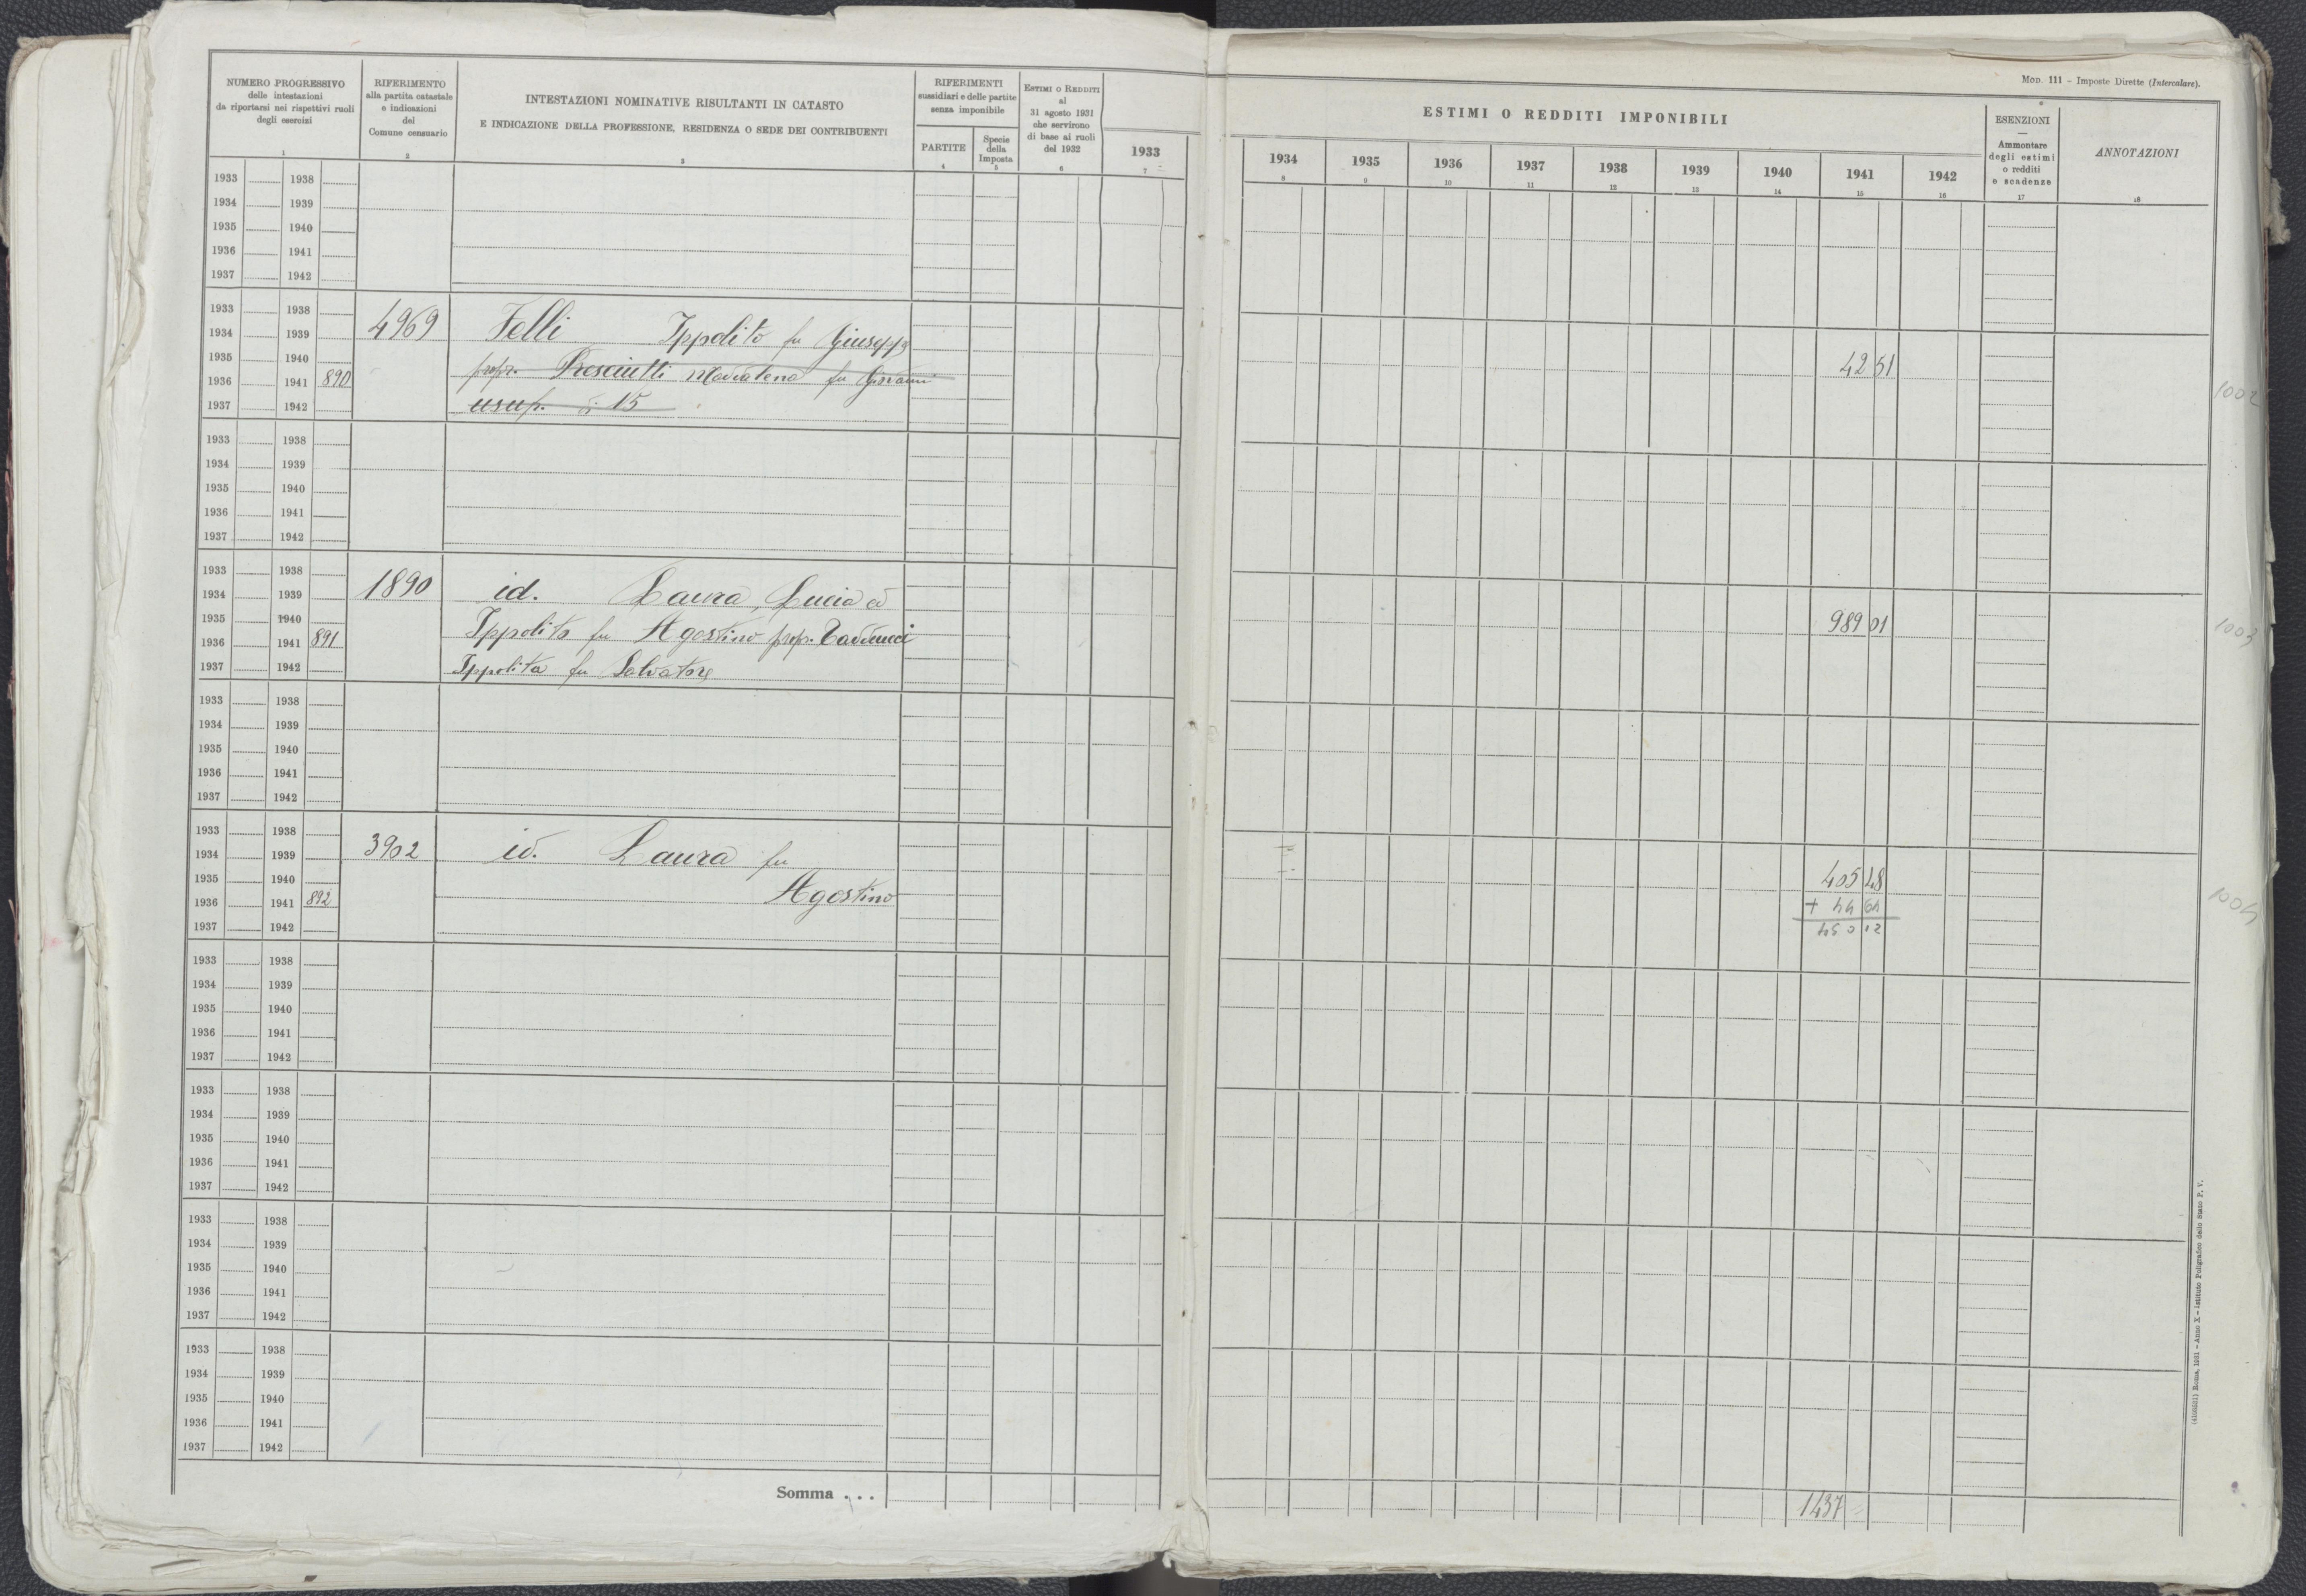 Mod. 111 - Imposte Dirette (Intercalare).
NUMERO PROGRESSIVO
delle intestazioni
da riportarsi nei rispettivi ruoli
degli esercizi
1
RIFERIMENTO
alla partita catastale
e indicazioni
del
Comune censuario
2
INTESTAZIONI NOMINATIVE RISULTANTI IN CATASTO
E INDICAZIONE DELLA PROFESSIONE, RESIDENZA O SEDE DEI CONTRIBUENTI
3
RIFERIMENTI
sussidiari e delle partite
senza imponibile
PARTITE
4
Specie
della
Imposta
5
ESTIMI O REDDITI
al
31 agosto 1931
che servirono
di base ai ruoli
del 1932
6
ESTIMI O REDDITI IMPONIBILI
1933 1934 1935 1936 1937 1938 1939 1940 1941 1942
7 8 9 10 11 12 13 14 15 16
ESENZIONI
—
Ammontare
degli estimi
o redditi
e scadenze
17
ANNOTAZIONI
18
1933 1938
1934 1939
1935 1940
1936 1941
1937 1942
1933 1938
1934 1939 4969 Felli Ippolito fu Giuseppe
1935 1940 42 51
1936 1941 890 propr. Presciutti Maddalena fu Giovanni 1002
1937 1942 usuf. 15
1933 1938
1934 1939
1935 1940
1936 1941
1937 1942
1933 1938
1934 1939 1890 id. Laura, Lucia ed
1935 1940 989 01
1936 1941 891 Ippolito fu Agostino propr. Tarducci 1003
1937 1942 Ippolita fu Salvatore
1933 1938
1934 1939
1935 1940
1936 1941
1937 1942
1933 1938
1934 1939 3902 id. Laura fu
1935 1940 405 48
1936 1941 892 Agostino + 44 64 1004
1937 1942 450 12
1933 1938
1934 1939
1935 1940
1936 1941
1937 1942
1933 1938
1934 1939
1935 1940
1936 1941
1937 1942
1933 1938
1934 1939
1935 1940
1936 1941
1937 1942
1933 1938
1934 1939
1935 1940
1936 1941
1937 1942
Somma . . . 1437 =
(4103251) Roma, 1931 - Anno X - Istituto Poligrafico dello Stato P. V.